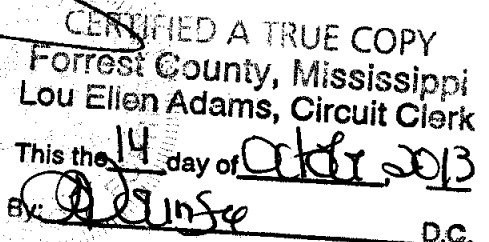 CERTIFIED A TRUE COPY
Forrest County, Mississippi
Lou Ellen Adams, Circuit Clerk
This the 14 day of October, 2013
By:
D.C.